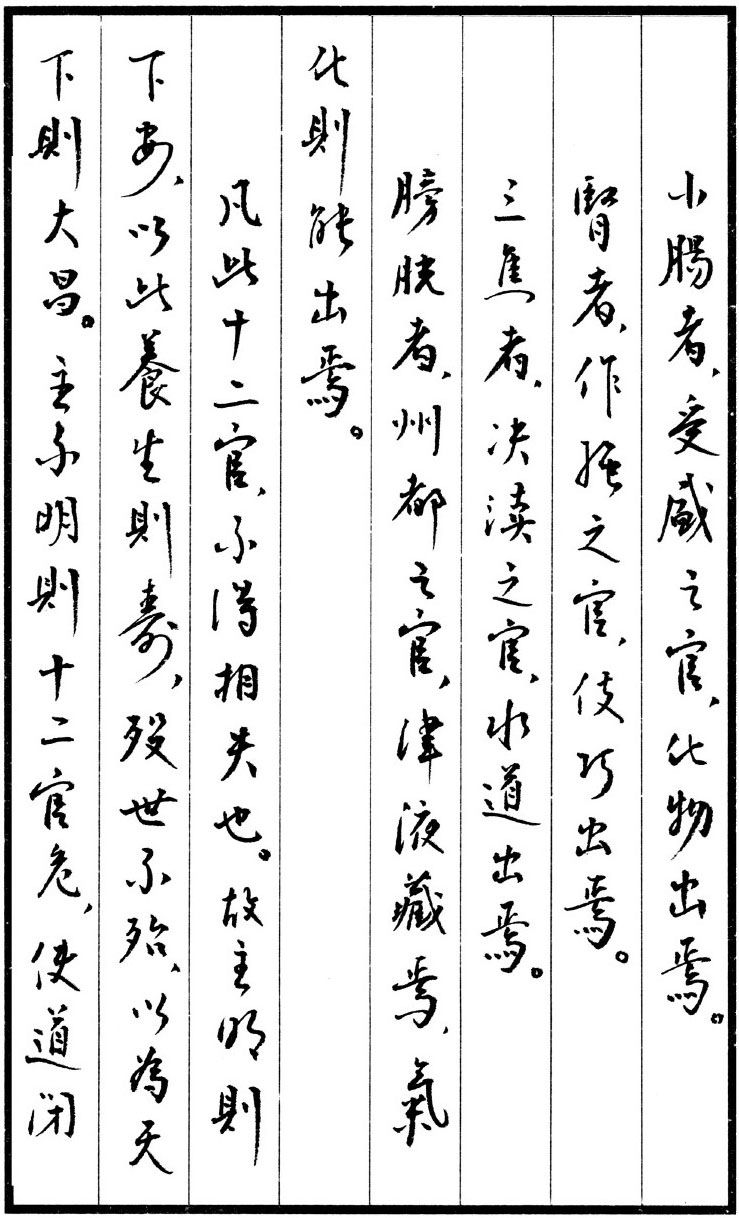 小腸者、受盛之官、化物出焉。
腎者、作強之官、伎巧出焉。
三焦者、决瀆之官、水道出焉。
膀胱者、州都之官、津液藏焉、氣
化則能出焉。
凡此十二官、不得相失也。故主明則
下安、以此養生則壽、殁世不殆、以為天
下則大昌。主不明則十二官危、使道闭